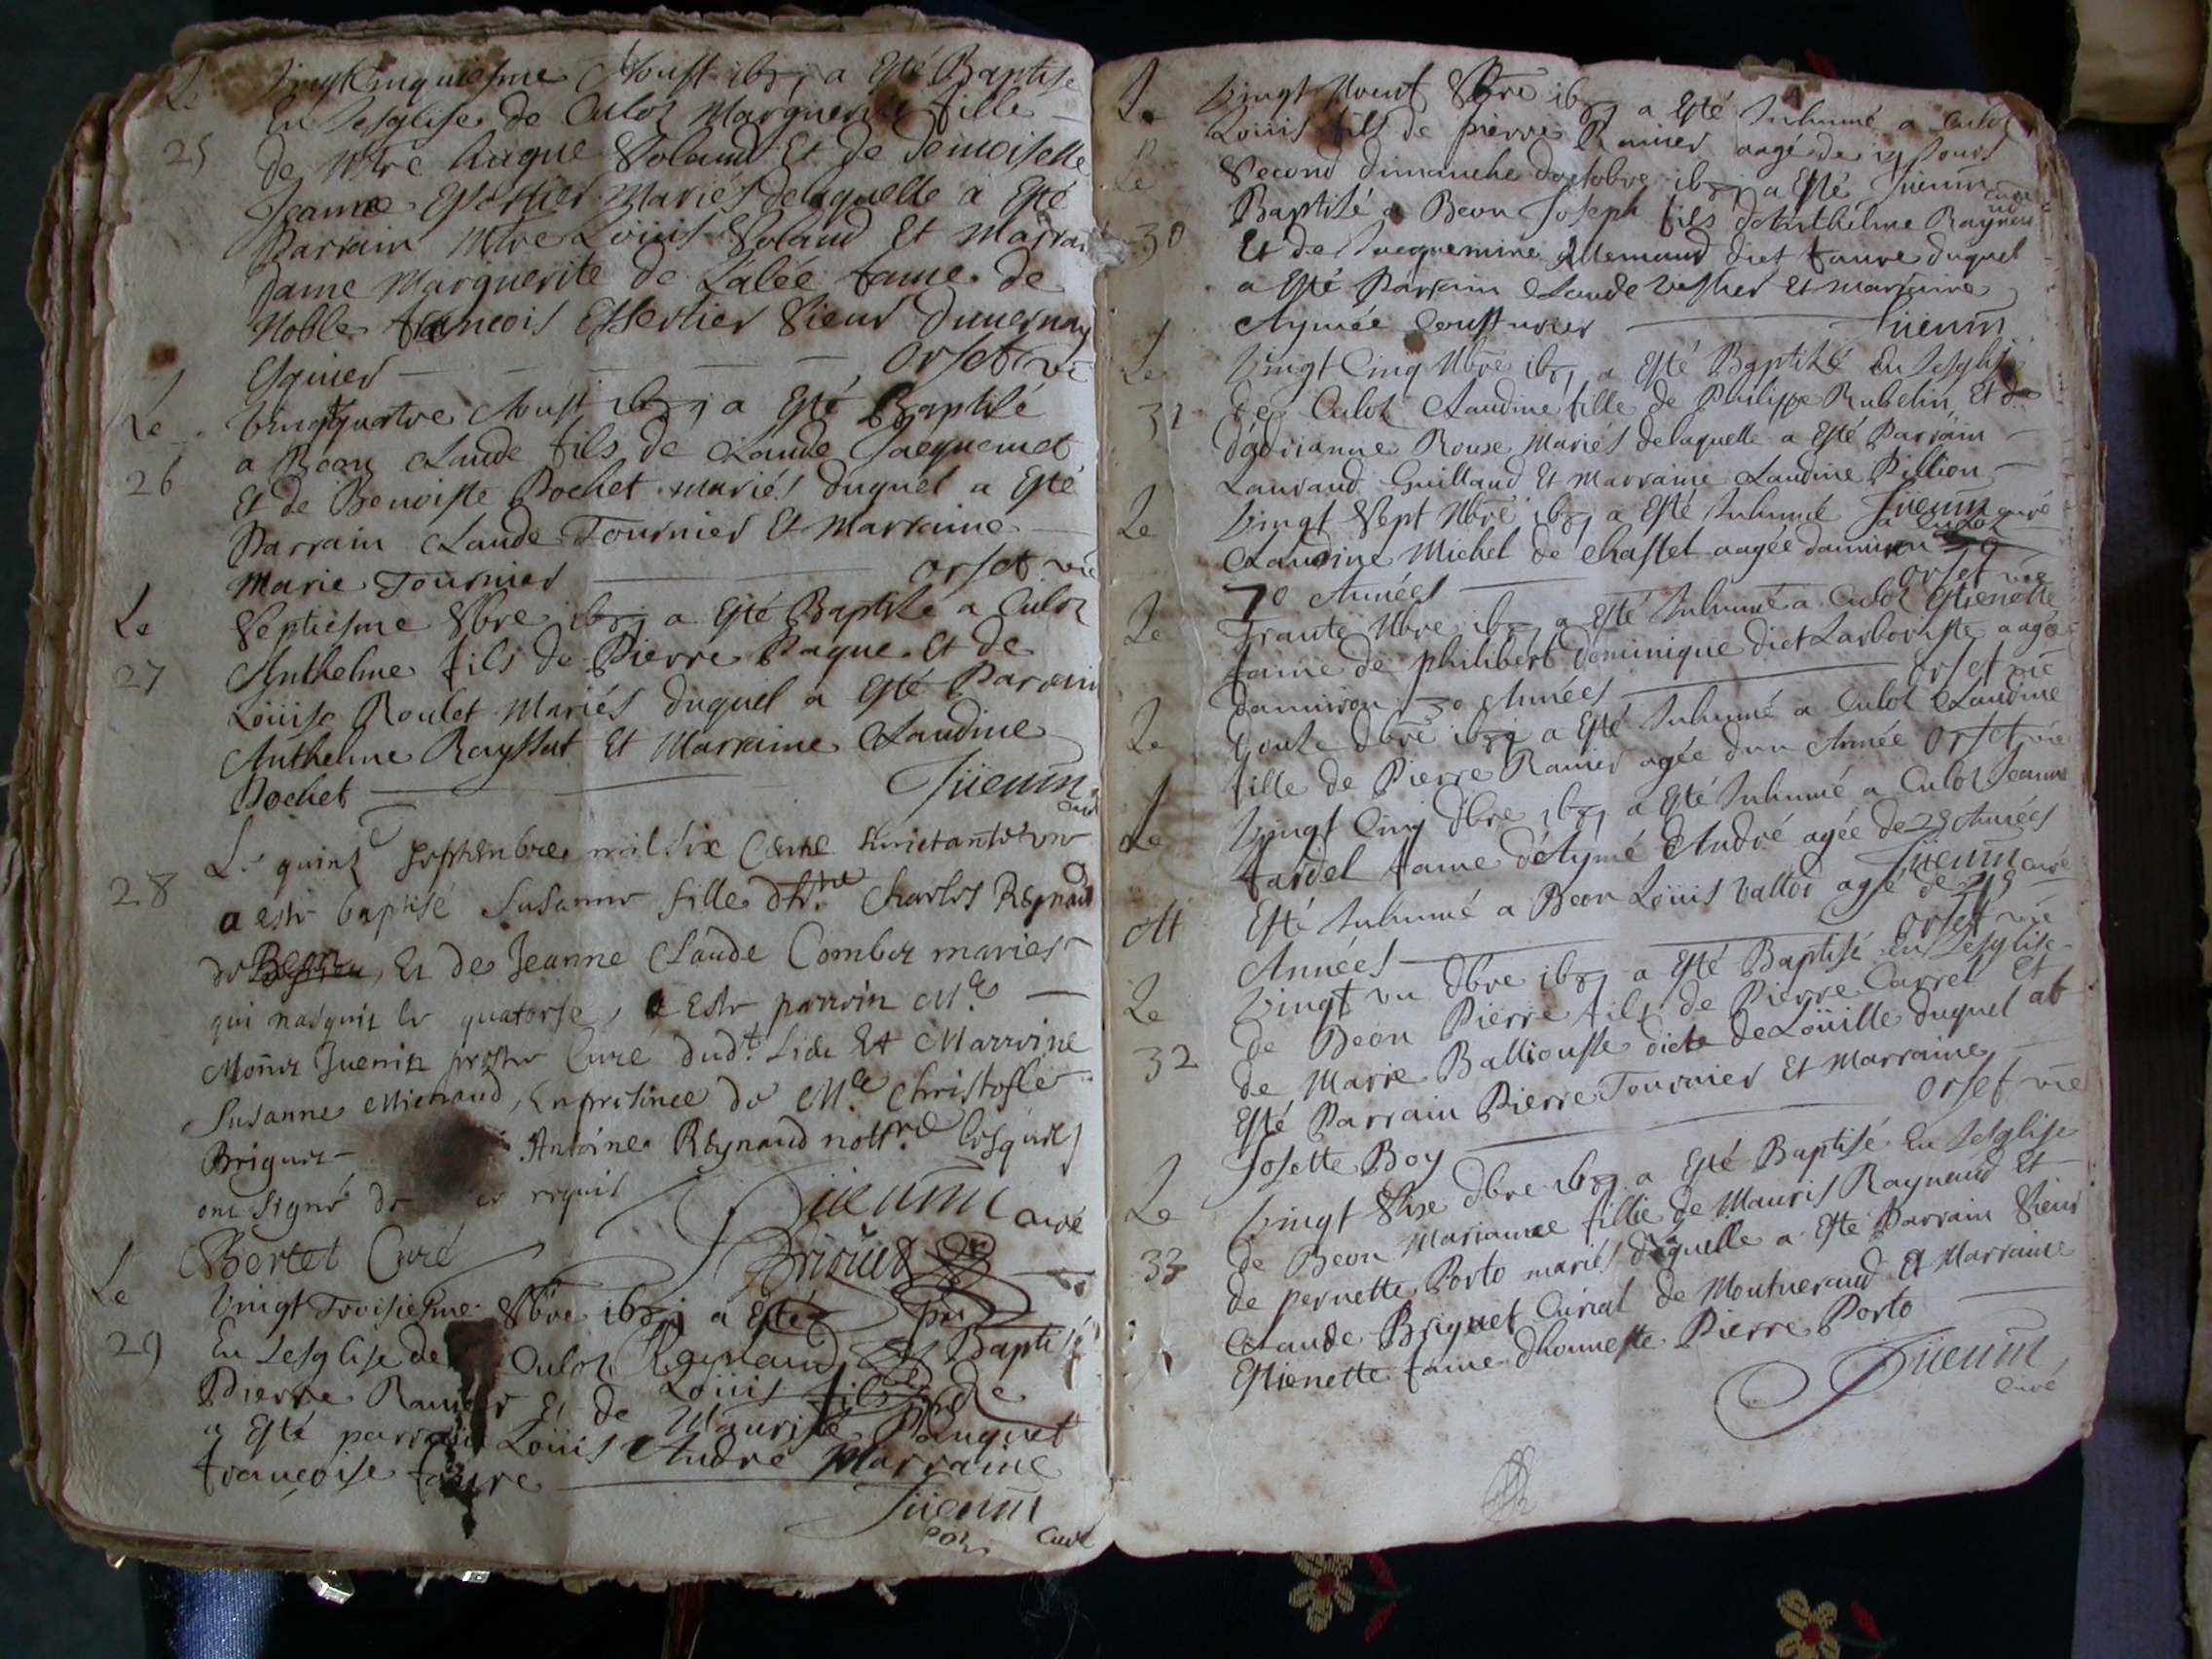 Le Vingt Cinquiesme Aoust 1671 a Esté Baptisé
En Lesglise de Culoz Marguerite fille
25 de Mtre Hugue Voland Et de Demoiselle
Jeanne Essertier Mariés Delaquelle à Esté
Parrain Mtre Loüis Voland Et Marrai
Dame Marguerite de Lalée fame de
Noble francois Essertier Sieur Duuernay
Esquier orset vic
Le Vingtquatre Aoust 1671 a Esté Baptisé
a Beon Claude fils de Claude Jacquemet
26 Et de Benoiste Pochet mariés duquel a Esté
Parrain Claude Tournier Et Marraine
Marie Tournier orset vic
Le Septiesme 8bre 1671 a Esté Baptisé a Culoz
27 Anthelme fils de Pierre Paque Et de
Loüise Roulet Mariés duquel a Esté Parrain
Anthelme Rayssat Et Marraine Claudine
Pochet Jüenin
curé
Le quinz septembre mil six Cents
28 a este baptisé Susanne fille Charles Reynaud
de Et de Jeanne Claude Combet maries
qui nasquit le quatorse, a este parrin Mre
Juenin prestre Curé dudt Lieu Et Marrine
Susanne Michaud, En presance de Mre Christofle
Briguet Antoine Reynaud nottre lesquels
ont signé de requis
Jüenin curé
Bertet Curé Briguet
Le Vingt Troisiesme 8bre 1671 a Esté
29 En Lesglise de Culoz Reynaud Baptisé
Loüis fils de
Pierre Ramier Et de Maurise Pauguet
a Esté parrain Loüis André Marraine
francoise faure
Jüenin
Curé
Le Vingt Neuf 8bre 1671 a Esté Inhumé a Culoz
Loüis fils de pierre Ramier aagé de Jours
Jüenin curé
Le Second dimanche doctobre 1671 a Esté
Baptisé a Beon Joseph fils dAnthelme Raynaud
30 Et de Jacquemine Allemand dict faure duquel
a Esté Parrain Claude Et marraine
Aymée Cousturier Jüenin
Le Vingt Cinq 9bre 1671 a Esté Baptisé En Lesglise
31 de Culoz Claudine fille de Philippe Rubelin Et de
d'adrianne Rouse Mariés delaquelle a Esté Parrain
Laurand Guillaud Et Marraine Claudine Pillion
Jüenin curé
Le Vingt Sept 9bre 1671 a Esté Inhumé a Culoz
Claudine Michel de Chastel aagée damiron
70 Années orset vic
Le Trante 9bre 1671 a Esté Inhumé a Culoz Estienette
fame de philibert Dominique dict Larboriste aagé
damiron 30 Années orset vic
Le Douse dbre 1671 a Esté Inhumé a Culoz Claudine
fille de Pierre Ramier agée dun Année orset vic
Le Vingt Cinq dbre 1671 a Esté Inhumé a Culoz Jeanne
fardel fame d'Aymé André agée de 28 Années
Jüenin curé
Att Esté Inhumé a Beon Loüis Vallod agé de
Années orset vic
Le Vingt vn dbre 1671 a Esté Baptisé En Lesglise
de Beon Pierre fils de Pierre Carrel Et
32 de Marie Balliousse dicte de Loüille duquel at
Esté Parrain Pierre Tournier Et Marraine
Josette Boy orset vic
Le Vingt Sixe dbre 1671 a Esté Baptisé En Lesglise
de Beon Marianne fille de Mauris Raynaud Et
33 de pernette Porto mariés daquelle a Esté Parrain Sieur
Claude Briguet Curial de Montueraud Et Marraine
Estienette fame dhonneste Pierre Porto
Jüenin
Curé